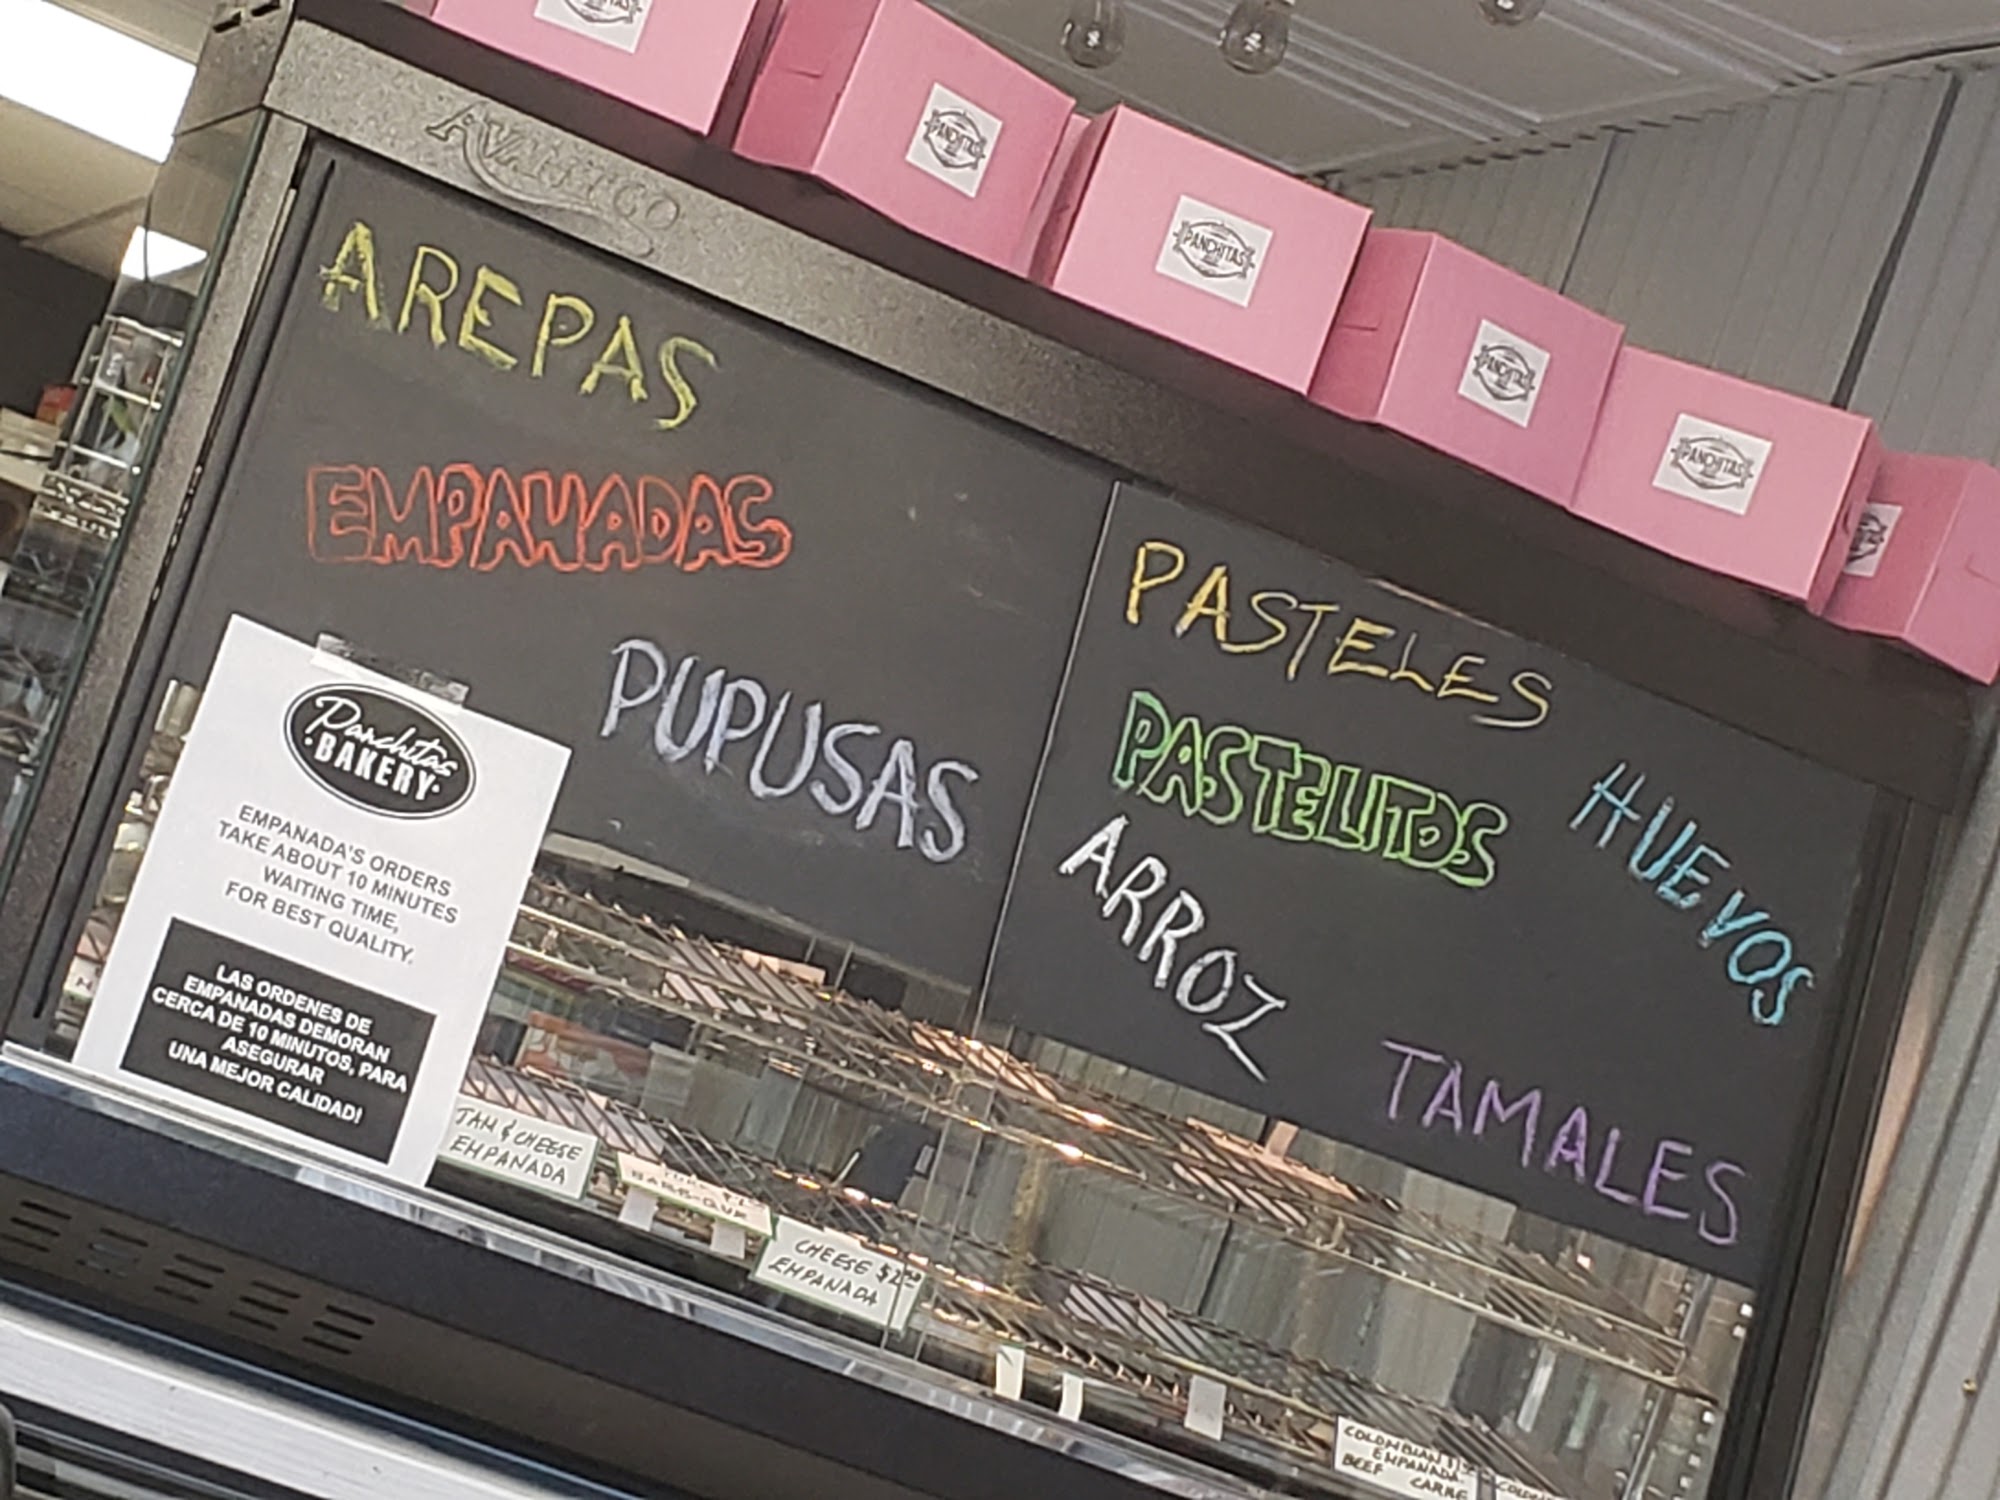 AVANTCO
PANCHITAS
PANCHITAS
PANCHITAS
PANCHITAS
AREPAS
EMPANADAS
PUPUSAS
PASTELES
PASTELITOS
HUEVOS
ARROZ
TAMALES
Panchitas
BAKERY
EMPANADA'S ORDERS
TAKE ABOUT 10 MINUTES
WAITING TIME,
FOR BEST QUALITY.
LAS ORDENES DE
EMPANADAS DEMORAN
CERCA DE 10 MINUTOS, PARA
ASEGURAR
UNA MEJOR CALIDAD!
& CHEESE
EMPANADA
BARB-QUE
CHEESE
EMPANADA
COLOMBIAN
EMPANADA
BEEF CARNE